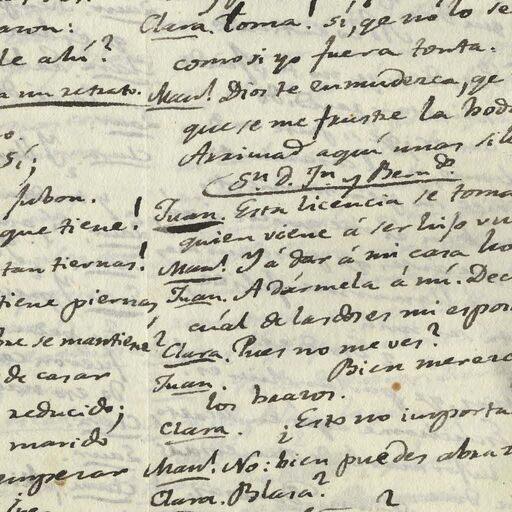 aron:
le ahí?
a un retrato.
o.
Sí;
jubon.
que tiene!
tan tiernas!
tiene piernas
se mantiene?
de casar
reducido;
marido
emperar
Clara. Toma! Sí, qe nó lo se
como si yo fuera tonta.
Manl. Dios te enmudezca, qe
que se me frustre la boda
Arrimad aquí unas sil
Sn. D. Jn. y Berndo.
Juan. Esta licencia se toma
quien viene á ser hijo vu
Manl. Y á dar á mi casa ho
Juan. A dármela á mí. Dec
cuál de las dos es mi espos
Clara. Pues no me ves?
Juan. Bien merez
los brazos.
Clara. ¿Esto no importa
Manl. No: bien puedes abraz
Clara. Blasa?